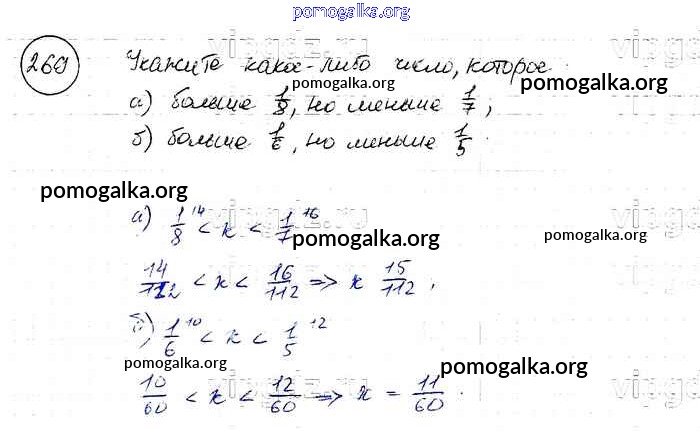 pomogalka.org
269 Укажите какое-либо число, которое:
pomogalka.org
а) больше 1/8, но меньше 1/7;
pomogalka.org
б) больше 1/6, но меньше 1/5.
pomogalka.org
pomogalka.org
а) 1/8 ¹⁴ < x < 1/7 ¹⁶
pomogalka.org
pomogalka.org
14/112 < x < 16/112 => x 15/112;
б) 1/6 ¹⁰ < x < 1/5 ¹²
pomogalka.org
pomogalka.org
10/60 < x < 12/60 => x = 11/60.